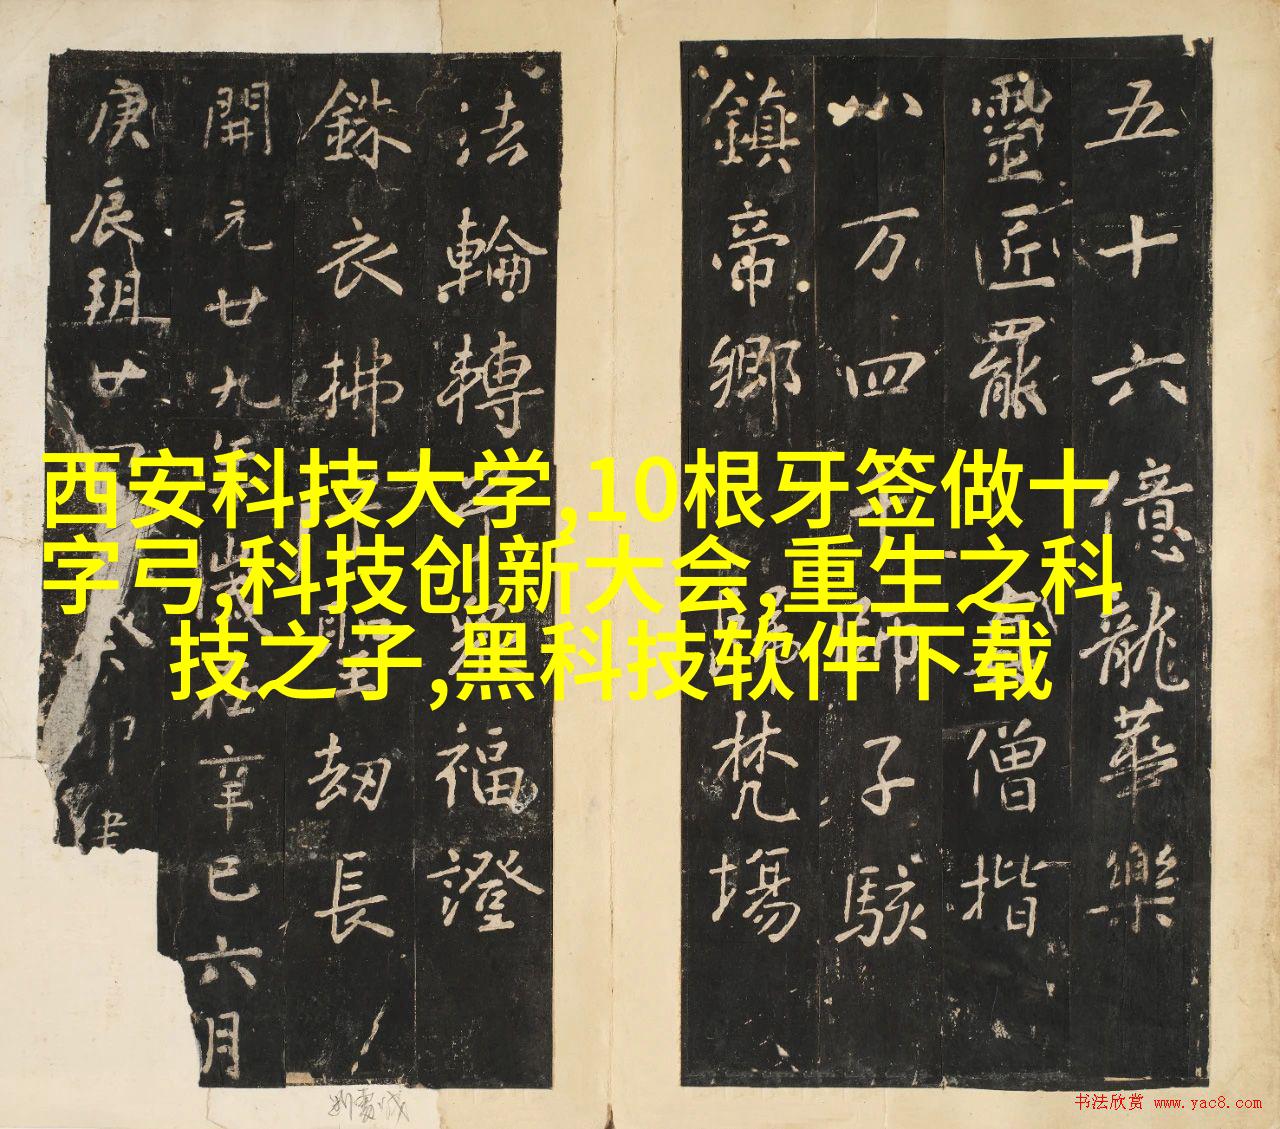 西安科技大学,10根牙签做十
字弓,科技创新大会,重生之科
技之子,黑科技软件下载
五十六億龍華樂
靈匠罷僧揩
八万四千師子駭
鎮帝鄉梵場
法輪轉福證
銖衣拂石聖劫長
開元廿九年歲在辛巳六月
庚辰朔廿四癸卯建
书法欣赏 www.yac8.com